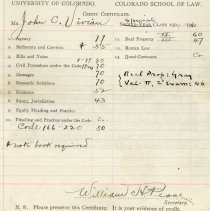 UNIVERSITY OF COLORADO. COLORADO SCHOOL OF LAW.
CREDIT CERTIFICATE.
Mr. John C. Vivian
1. Agency 77
2. Bailments and Carriers 55
3. Bills and Notes 80
4. Civil Procedure under the Code 70
5. Damages 70
6. Domestic Relations 10
7. Evidence 52
8. Equity Jurisdiction 43
9. Equity Pleading and Practice
10. Pleading and Practice under the Code
Code 166-220 80
note book required
11. 60
12. Real Property 47
13. Roman Law
14. Quasi Contracts
Real Prop. Gray
Vol. II, 2 exams. 40
William H. Pease
Secretary.
N. B. Please preserve this Certificate. It is your evidence of credit.